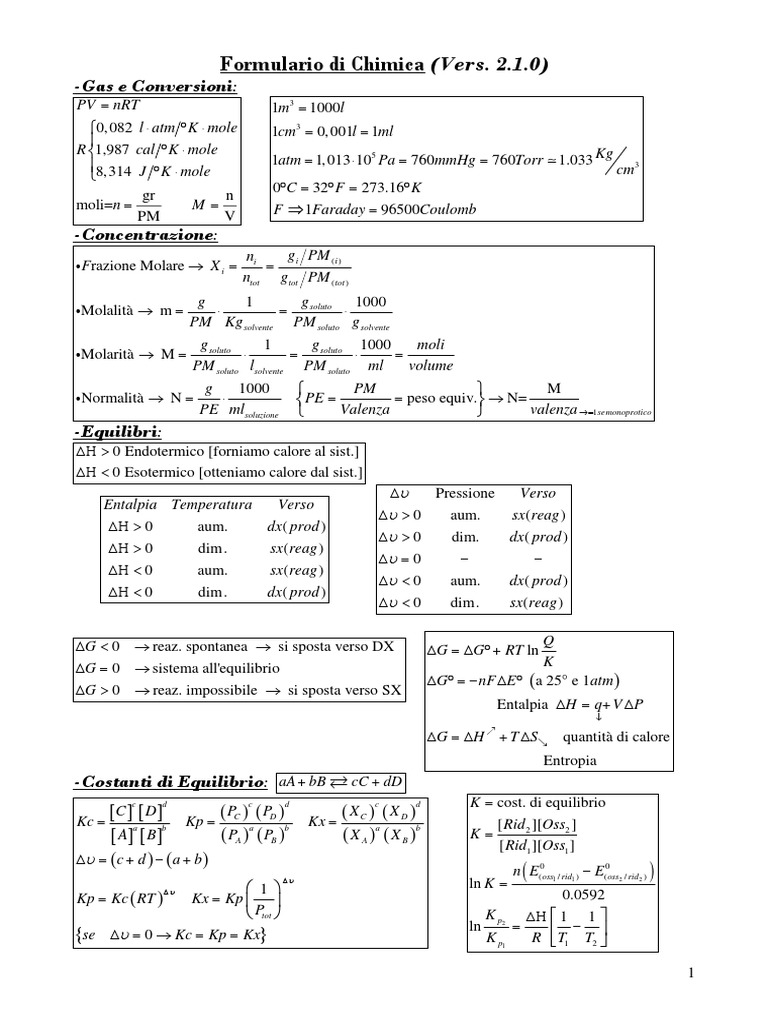 Formulario di Chimica (Vers. 2.1.0)
-Gas e Conversioni:
PV = nRT
R { 0,082 l·atm/°K·mole
1,987 cal/°K·mole
8,314 J/°K·mole
moli=n = gr/PM M = n/V
1m³ = 1000l
1cm³ = 0,001l = 1ml
1atm = 1,013·10⁵ Pa = 760mmHg = 760Torr ≃ 1.033 Kg/cm³
0°C = 32°F = 273.16°K
F ⇒ 1Faraday = 96500Coulomb
-Concentrazione:
•Frazione Molare → X_i = n_i/n_tot = (g_i/PM_(i))/(g_tot/PM_(tot))
•Molalità → m = g/PM · 1/Kg_solvente = g_soluto/PM_soluto · 1000/g_solvente
•Molarità → M = g_soluto/PM_soluto · 1/l_solvente = g_soluto/PM_soluto · 1000/ml = moli/volume
•Normalità → N = g/PE · 1000/ml_soluzione {PE = PM/Valenza = peso equiv.} → N= M/valenza_→=1se monoprotico
-Equilibri:
ΔH > 0 Endotermico [forniamo calore al sist.]
ΔH < 0 Esotermico [otteniamo calore dal sist.]
Entalpia Temperatura Verso
ΔH > 0 aum. dx(prod)
ΔH > 0 dim. sx(reag)
ΔH < 0 aum. sx(reag)
ΔH < 0 dim. dx(prod)
Δυ Pressione Verso
Δυ > 0 aum. sx(reag)
Δυ > 0 dim. dx(prod)
Δυ = 0 − −
Δυ < 0 aum. dx(prod)
Δυ < 0 dim. sx(reag)
ΔG < 0 → reaz. spontanea → si sposta verso DX
ΔG = 0 → sistema all'equilibrio
ΔG > 0 → reaz. impossibile → si sposta verso SX
ΔG = ΔG° + RT ln Q/K
ΔG° = −nFΔE° (a 25° e 1atm)
Entalpia ΔH = q + VΔP
↓
ΔG = ΔH↗ + TΔS↘ quantità di calore
Entropia
-Costanti di Equilibrio: aA + bB ⇄ cC + dD
Kc = [C]^c [D]^d / [A]^a [B]^b Kp = (P_C)^c (P_D)^d / (P_A)^a (P_B)^b Kx = (X_C)^c (X_D)^d / (X_A)^a (X_B)^b
Δυ = (c + d) − (a + b)
Kp = Kc(RT)^Δυ Kx = Kp(1/P_tot)^Δυ
{se Δυ = 0 → Kc = Kp = Kx}
K = cost. di equilibrio
K = [Rid₂][Oss₂] / [Rid₁][Oss₁]
ln K = n(E⁰_(oss₁/rid₁) − E⁰_(oss₂/rid₂)) / 0.0592
ln K_p₂/K_p₁ = ΔH/R [1/T₁ − 1/T₂]
1